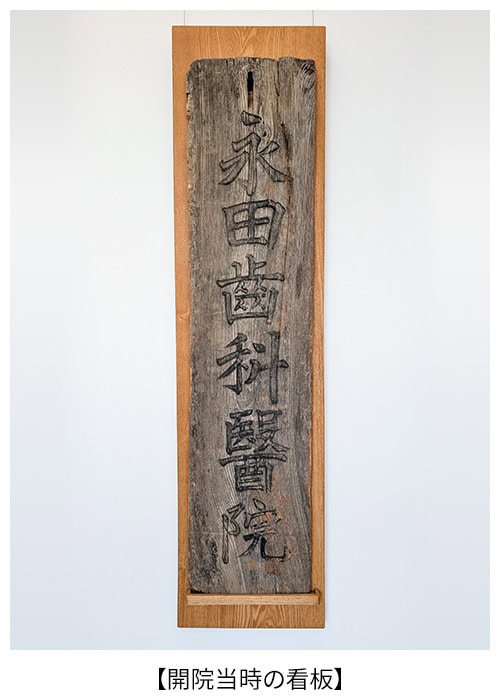 永田歯科醫院
【開院当時の看板】